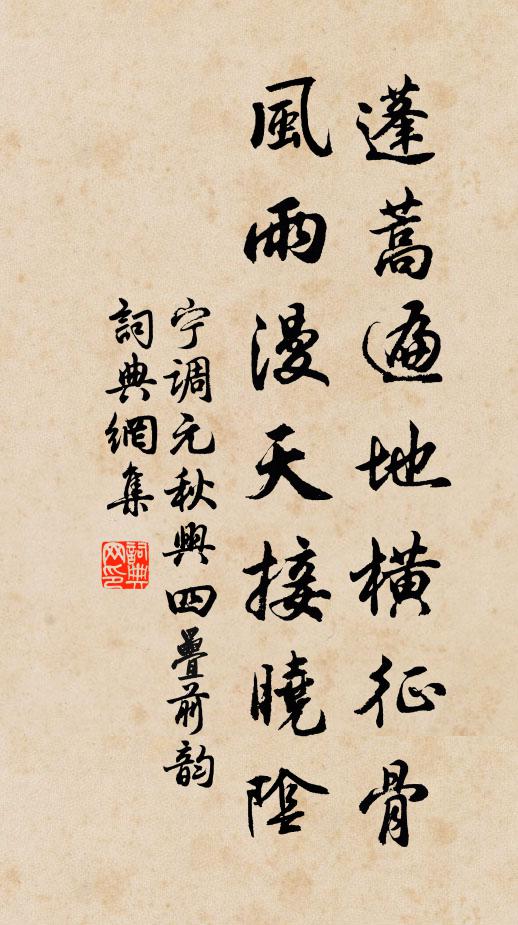 蓬蒿遍地橫征骨
風雨漫天接曉陰
宁調元秋興四疊前韵
詞典網集
詞典网印